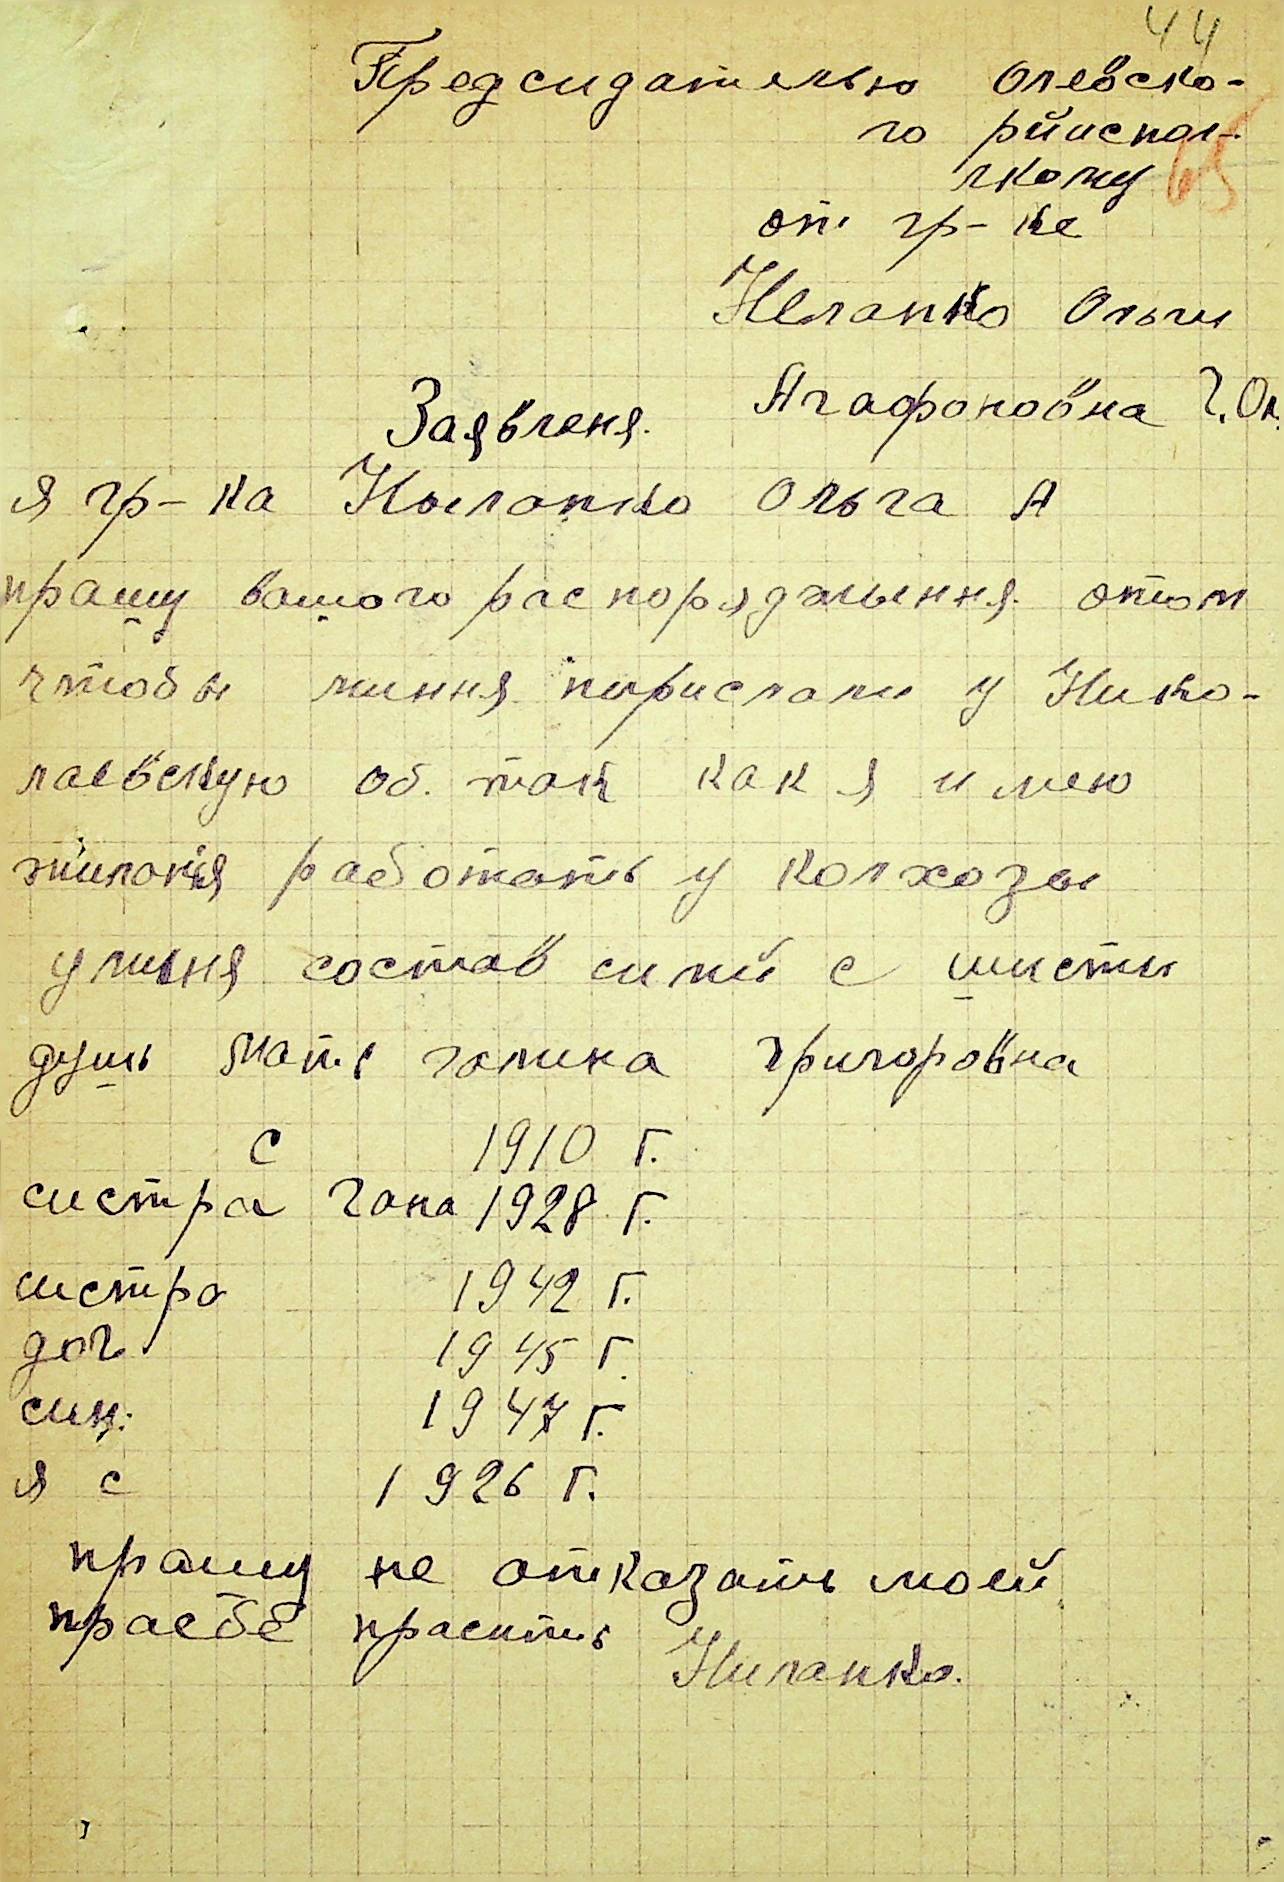 44
Предсидателью Олевско-
го рйиспол-
лкому
65
от гр-ке
Неланко Ольги
Агафоновна г. Ол.
Заявленя.
я гр-ка Ныланко Ольга А
прашу вашого распоряджыння отом
чтобы миння пирислали у Нико-
лаевскую об. так как я имею
жиланія работать у колхозы
у миня состав симй с шисти
душь Мать галина григоровна
с 1910 г.
систра Гана 1928 г.
систра 1942 г.
доч 1945 г.
син. 1947 г.
я с 1926 г.
прашу не отказать моей
прасбе прасить
Ниланко.